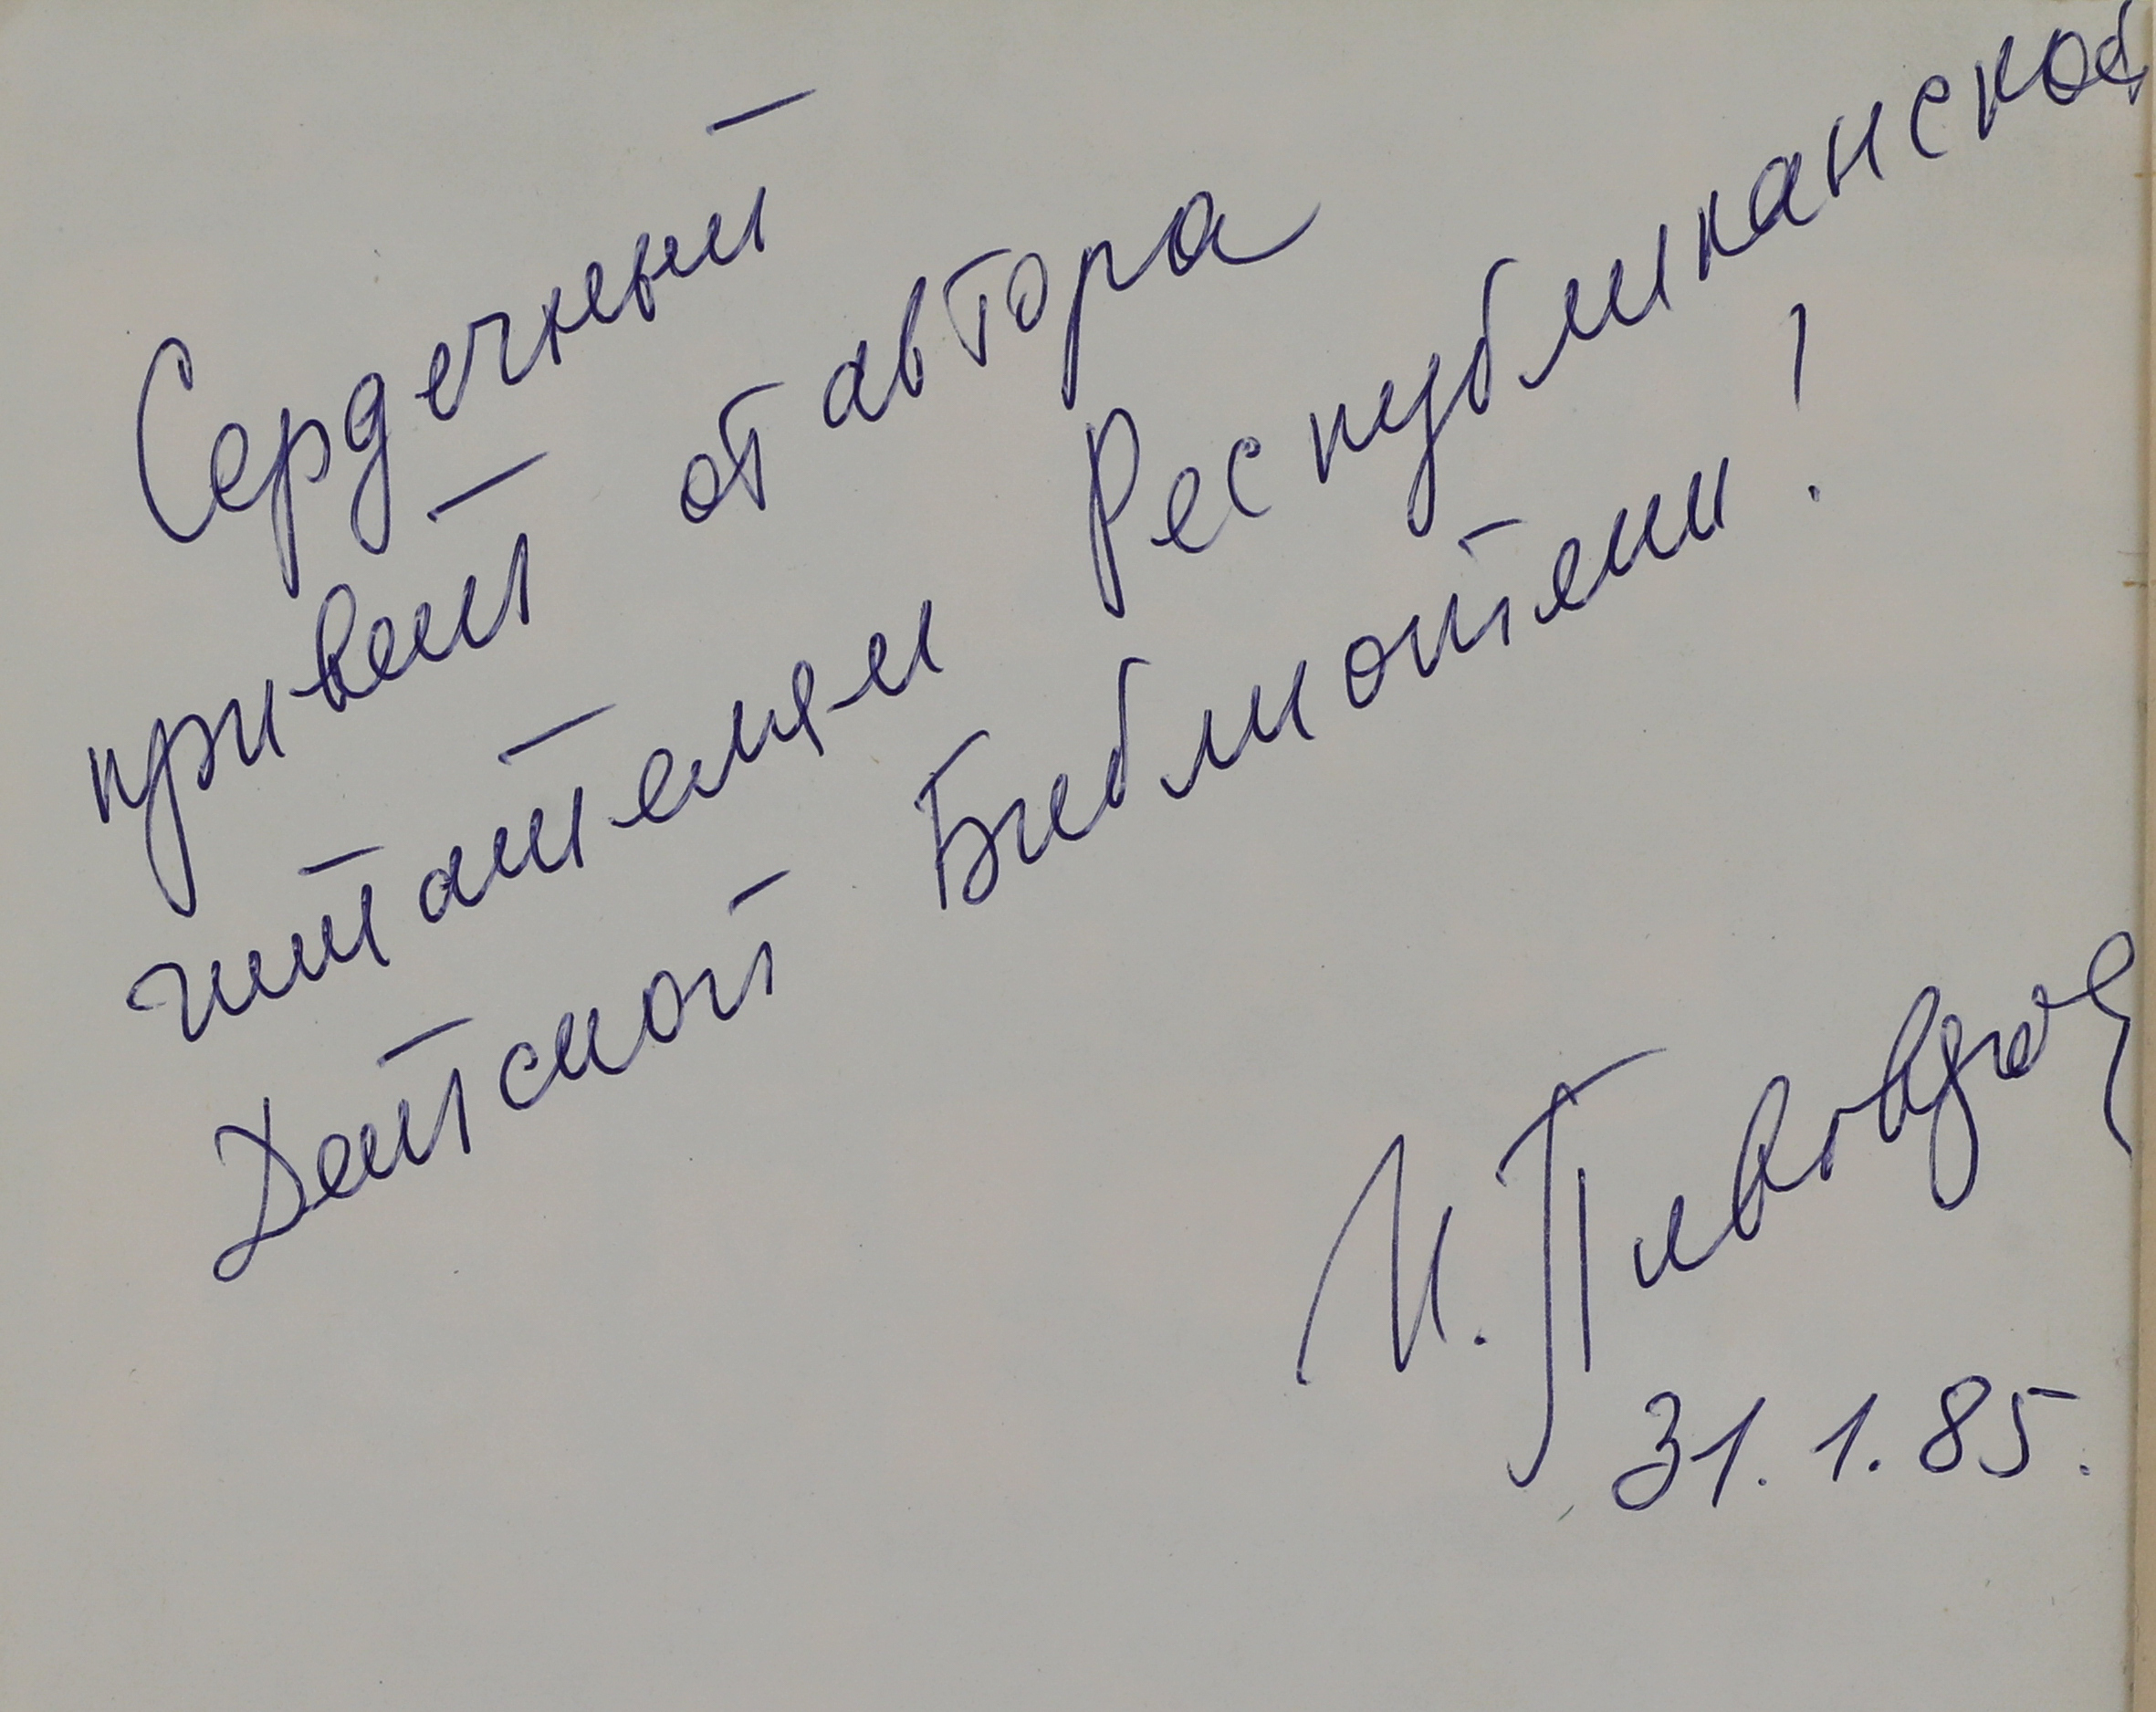 Сердечный
привет от автора
читателям Республиканской
Детской Библиотеки!
И. Пивоварова
31.1.85.